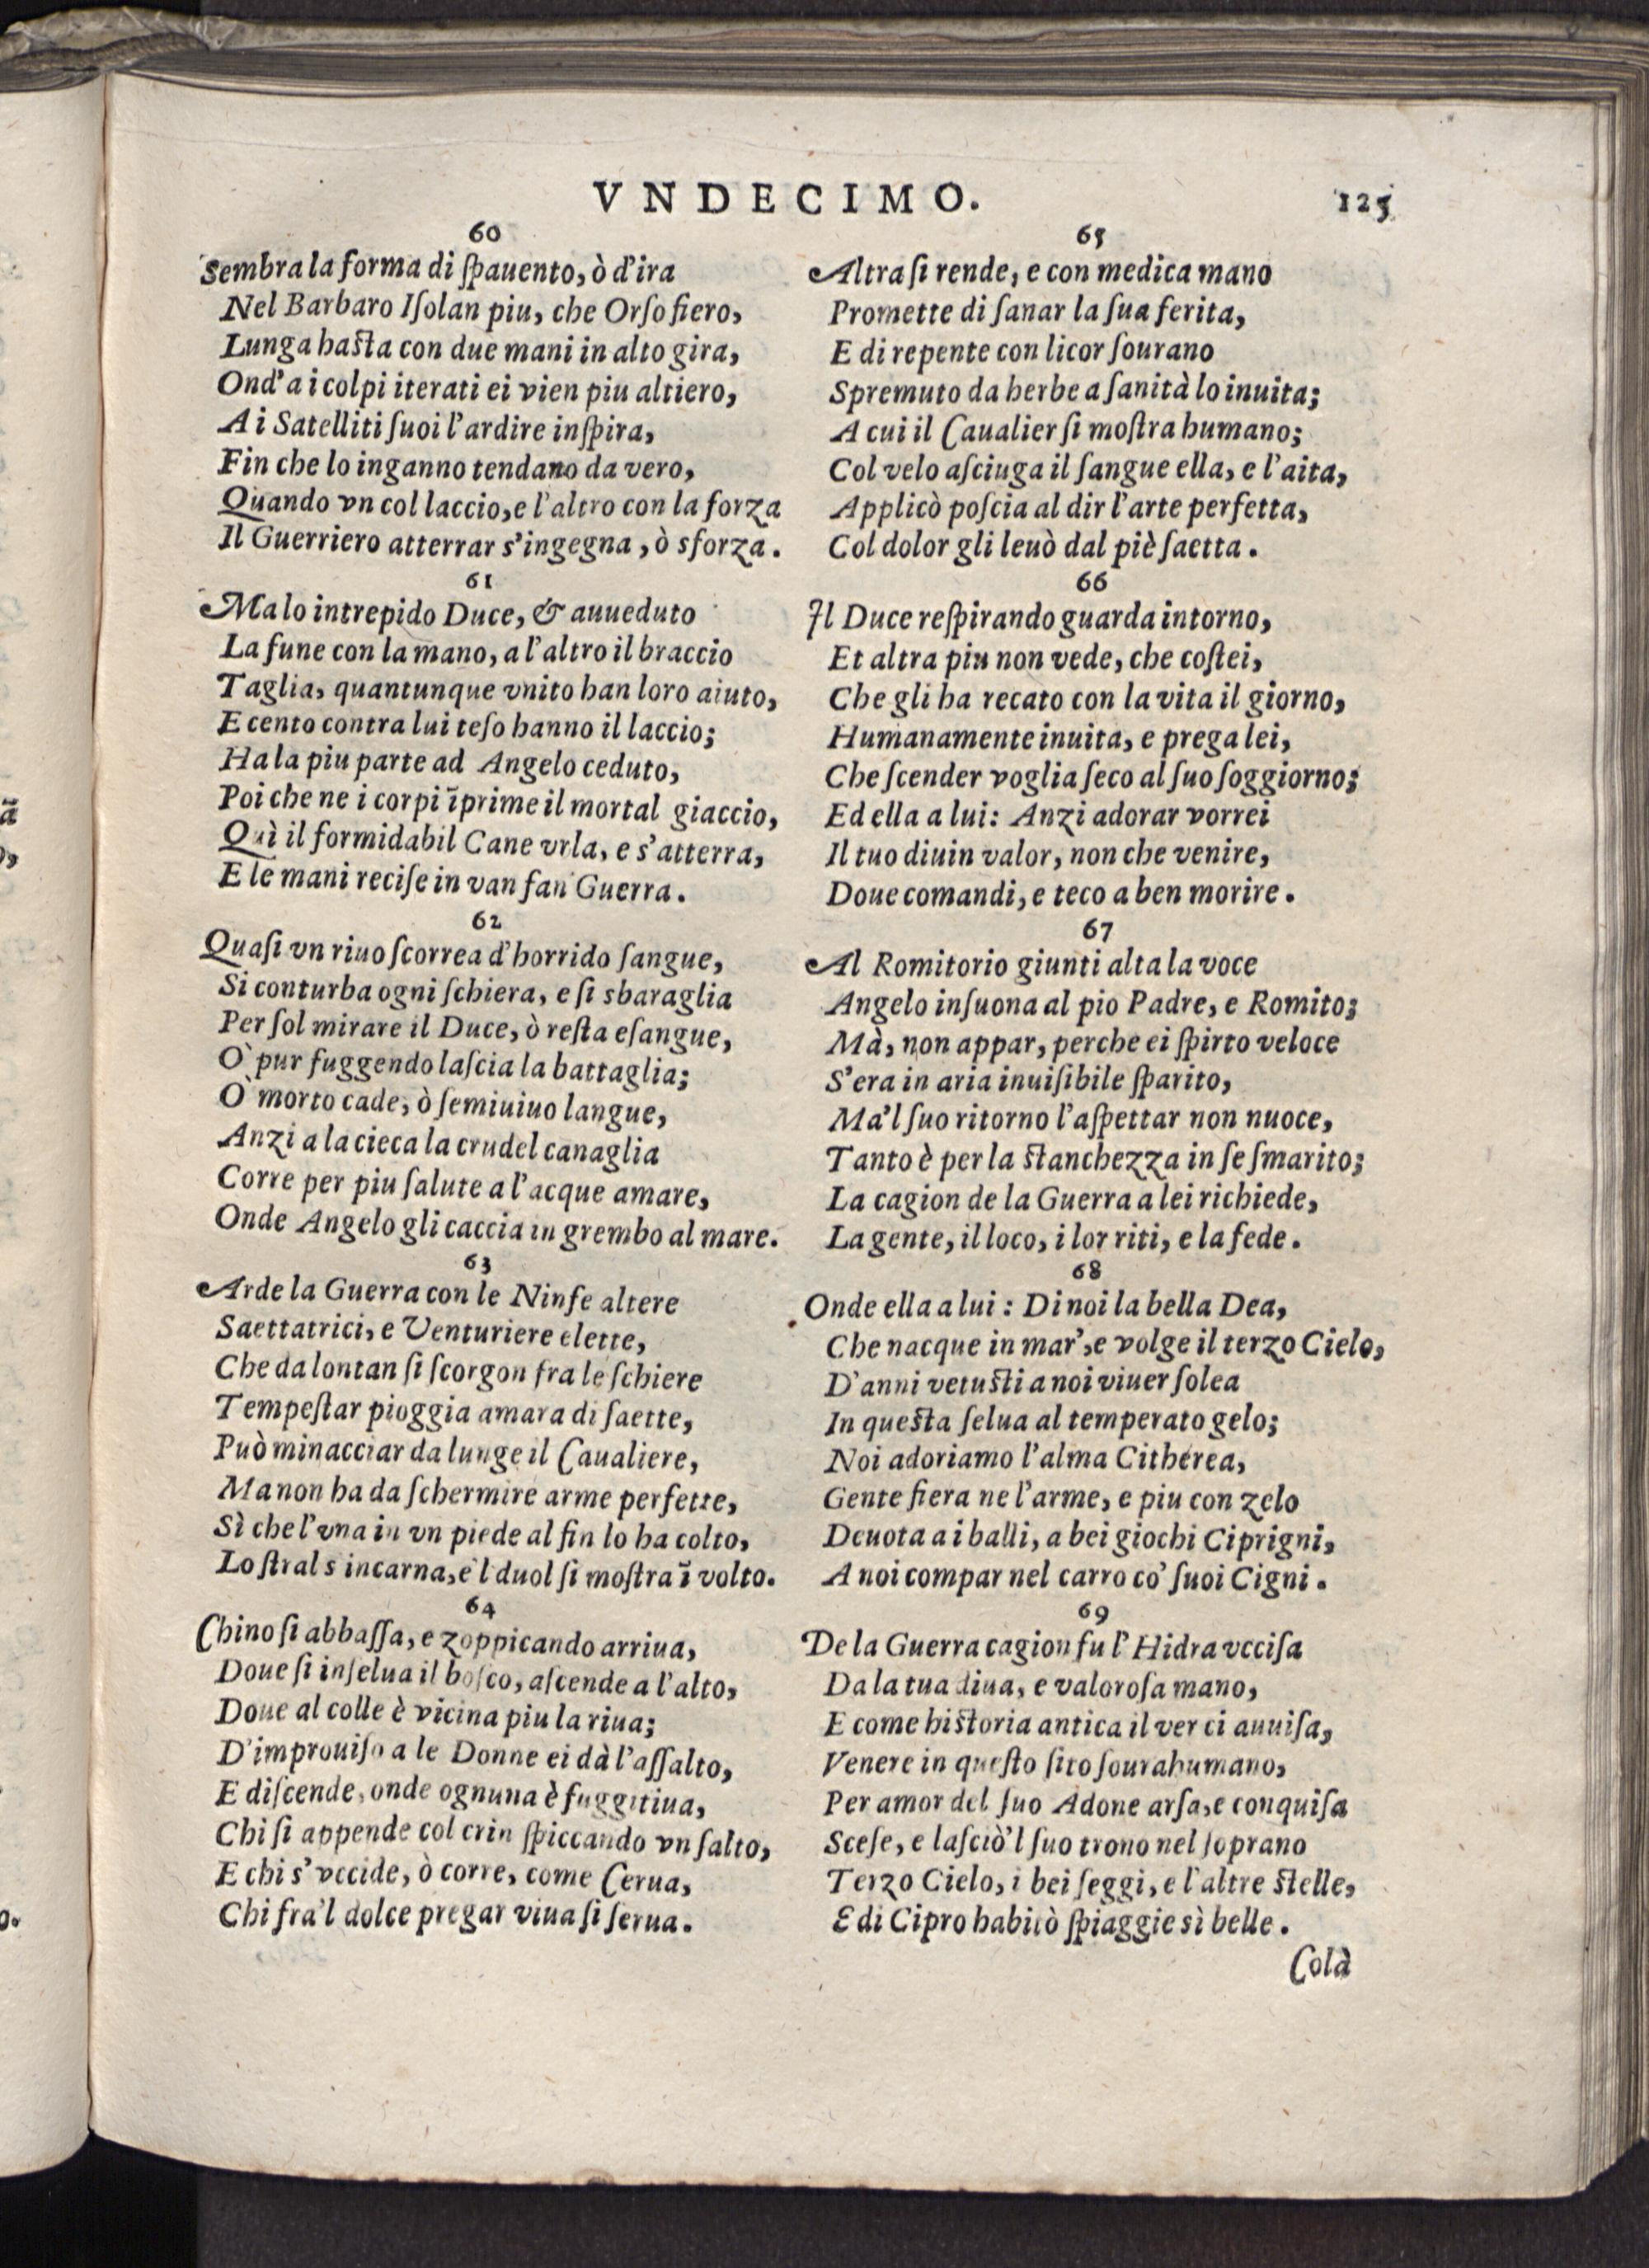 VNDECIMO. 125
60
Sembra la forma di ſpauento, ò d'ira
Nel Barbaro Iſolan piu, che Orſo fiero,
Lunga haſta con due mani in alto gira,
Ond' a i colpi iterati ei vien piu altiero,
A i Satelliti ſuoi l'ardire inſpira,
Fin che lo inganno tendano da vero,
Quando vn col laccio, e l'altro con la forza
Il Guerriero atterrar s'ingegna, ò sforza.
61
Ma lo intrepido Duce, & auueduto
La fune con la mano, a l'altro il braccio
Taglia, quantunque vnito han loro aiuto,
E cento contra lui teſo hanno il laccio;
Ha la piu parte ad Angelo ceduto,
Poi che ne i corpi ĩprime il mortal giaccio,
Quì il formidabil Cane vrla, e s'atterra,
E le mani reciſe in van fan Guerra.
62
Quaſi vn riuo ſcorrea d'horrido ſangue,
Si conturba ogni ſchiera, e ſi sbaraglia
Per ſol mirare il Duce, ò reſta eſangue,
Ò pur fuggendo laſcia la battaglia;
Ò morto cade, ò ſemiuiuo langue,
Anzi a la cieca la crudel canaglia
Corre per piu ſalute a l'acque amare,
Onde Angelo gli caccia in grembo al mare.
63
Arde la Guerra con le Ninfe altere
Saettatrici, e Venturiere elette,
Che da lontan ſi ſcorgon fra le ſchiere
Tempeſtar pioggia amara di ſaette,
Può minacciar da lunge il Caualiere,
Ma non ha da ſchermire arme perfette,
Sì che l'vna in vn piede al fin lo ha colto,
Lo ſtral s incarna, e'l duol ſi moſtra ĩ volto.
64
Chino ſi abbaſſa, e zoppicando arriua,
Doue ſi inſelua il boſco, aſcende a l'alto,
Doue al colle è vicina piu la riua;
D'improuiſo a le Donne ei dà l'aſſalto,
E diſcende, onde ognuna è fuggitiua,
Chi ſi appende col crin ſpiccando vn ſalto,
E chi s'vccide, ò corre, come Cerua,
Chi fra'l dolce pregar viua ſi ſerua.
65
Altra ſi rende, e con medica mano
Promette di ſanar la ſua ferita,
E di repente con licor ſourano
Spremuto da herbe a ſanità lo inuita;
A cui il Caualier ſi moſtra humano;
Col velo aſciuga il ſangue ella, e l'aita,
Applicò poſcia al dir l'arte perfetta,
Col dolor gli leuò dal piè ſaetta.
66
Il Duce reſpirando guarda intorno,
Et altra piu non vede, che coſtei,
Che gli ha recato con la vita il giorno,
Humanamente inuita, e prega lei,
Che ſcender voglia ſeco al ſuo ſoggiorno;
Ed ella a lui: Anzi adorar vorrei
Il tuo diuin valor, non che venire,
Doue comandi, e teco a ben morire.
67
Al Romitorio giunti alta la voce
Angelo inſuona al pio Padre, e Romito;
Mà, non appar, perche ei ſpirto veloce
S'era in aria inuiſibile ſparito,
Ma'l ſuo ritorno l'aſpettar non nuoce,
Tanto è per la ſtanchezza in ſe ſmarito;
La cagion de la Guerra a lei richiede,
La gente, il loco, i lor riti, e la fede.
68
Onde ella a lui: Di noi la bella Dea,
Che nacque in mar', e volge il terzo Cielo,
D'anni vetuſti a noi viuer ſolea
In queſta ſelua al temperato gelo;
Noi adoriamo l'alma Citherea,
Gente fiera ne l'arme, e piu con zelo
Deuota a i balli, a bei giochi Ciprigni,
A noi compar nel carro co' ſuoi Cigni.
69
De la Guerra cagion fu l'Hidra vcciſa
Da la tua diua, e valoroſa mano,
E come hiſtoria antica il ver ci auuiſa,
Venere in queſto ſito ſourahumano,
Per amor del ſuo Adone arſa, e conquiſa
Sceſe, e laſciò'l ſuo trono nel ſoprano
Terzo Cielo, i bei ſeggi, e l'altre ſtelle,
E di Cipro habitò ſpiaggie sì belle.
Colà